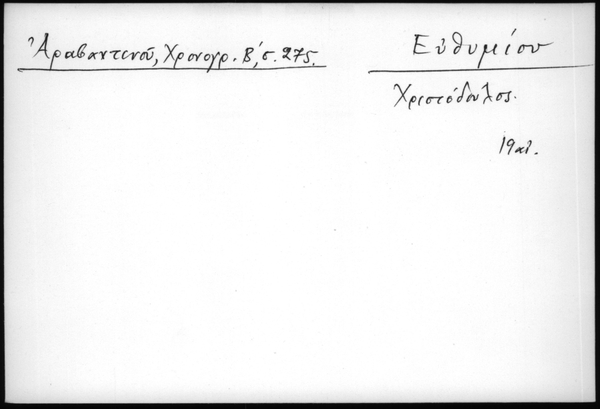 Ἀραβαντινοῦ, Χρονογρ. Β΄, σ. 275.
Εὐθυμίου
Χριστόδουλος.
19 αἰ.